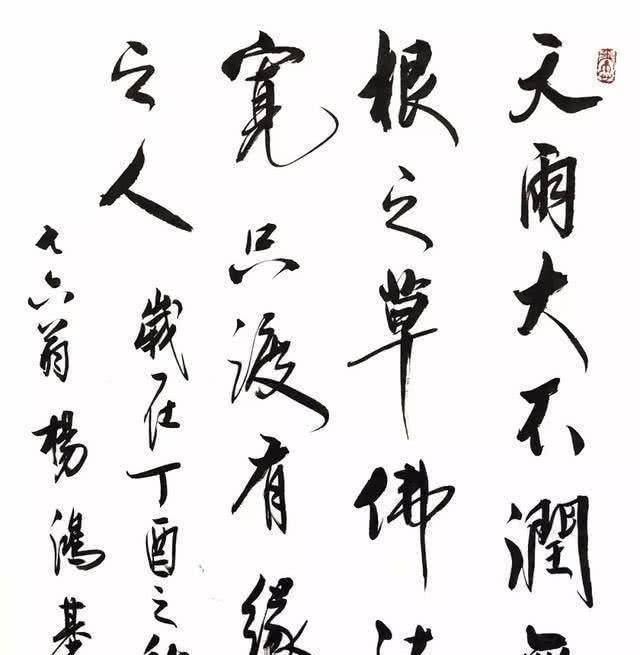 天雨大不潤無
根之草佛法
寬只渡有緣
之人
歲在丁酉之秋
七六翁楊鴻基